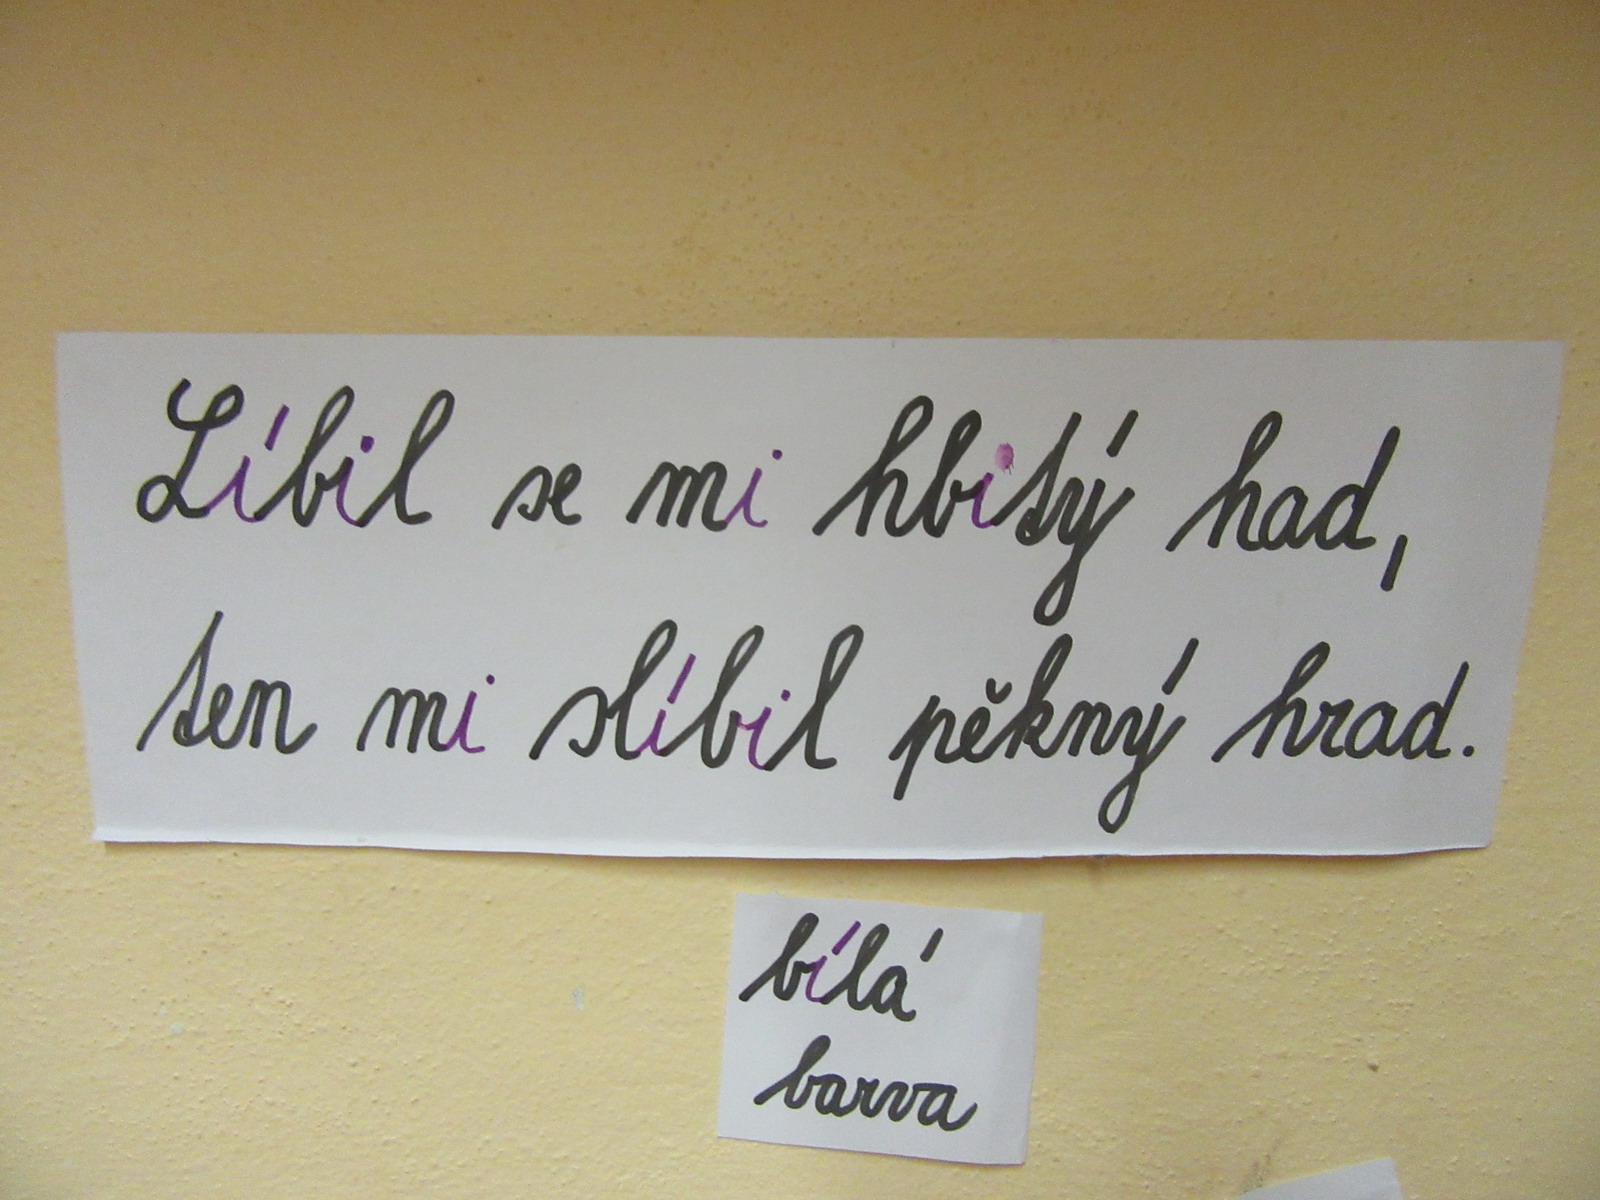 Líbil se mi hbitý had,
ten mi slíbil pěkný hrad.
bílá
barva